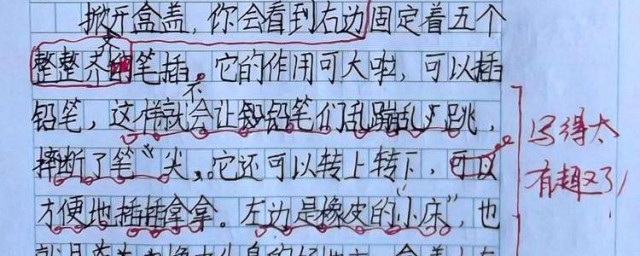 掀开盒盖，你会看到右边固定着五个
整整齐齐的笔插。它的作用可大啦，可以插
铅笔，这样就不会让铅笔们乱蹦乱跳，
摔断了笔“尖”。它还可以转上转下，可以
方便地插插拿拿。左边是橡皮的“小床”，也
写得太
有趣了！